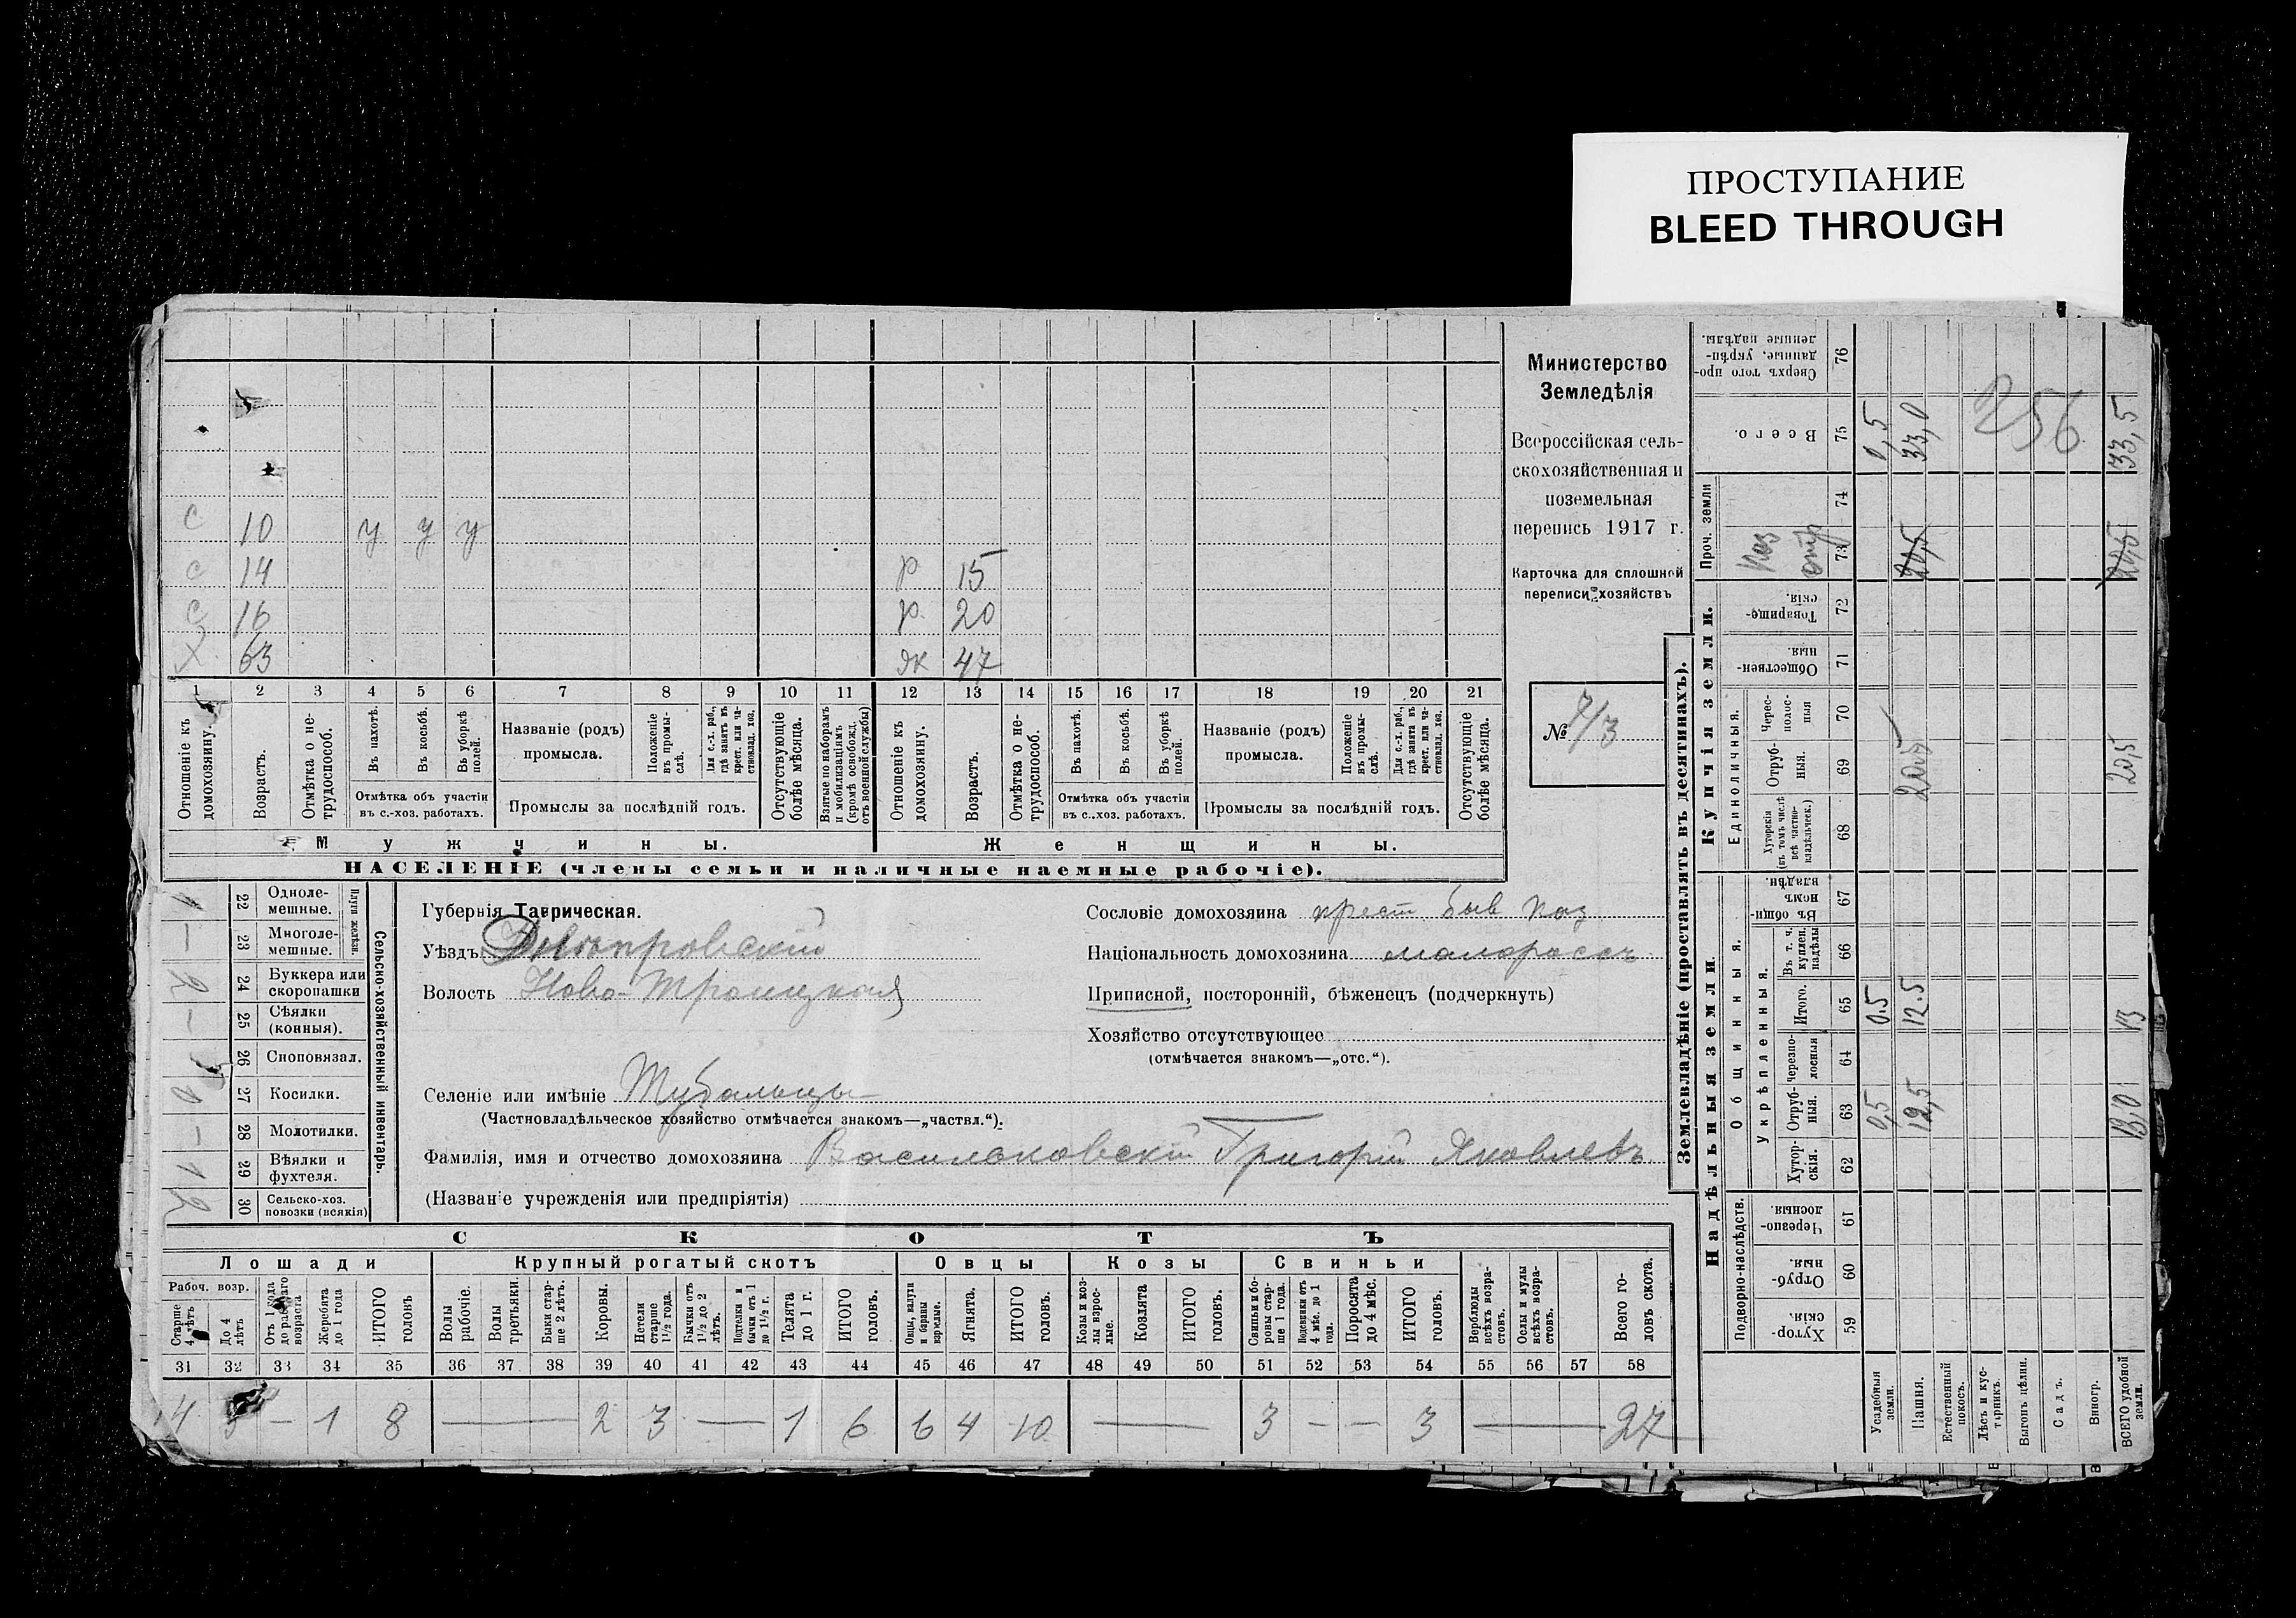 ПРОСТУПАНИЕ
BLEED THROUGH
Министерство
Земледѣлія
Всероссійская сель-
скохозяйственная и
поземельная
перепись 1917 г.
Карточка для сплошной
переписи хозяйствъ
№ 7/3
с 10 у у у
с 14 р 15
с 16 р 20
х 63 як 47
1 2 3 4 5 6 7 8 9 10 11 12 13 14 15 16 17 18 19 20 21
Отношеніе къ домохозяину.
Возрастъ.
Отмѣтка о не-трудоспособ.
Въ пахотѣ.
Въ косьбѣ.
Въ уборкѣ полей.
Отмѣтка объ участіи
въ с.-хоз. работахъ.
Названіе (родъ)
промысла.
Положеніе въ промы-слѣ.
Для с.-х. раб., гдѣ занятъ въ крест. или ча-стновлад. хоз.
Промыслы за послѣдній годъ.
Отсутствующіе болѣе мѣсяца.
Взятые по наборамъ и мобилизаціямъ (кромѣ освобожд. отъ военной службы)
Отношеніе къ домохозяину.
Возрастъ.
Отмѣтка о не-трудоспособ.
Въ пахотѣ.
Въ косьбѣ.
Въ уборкѣ полей.
Отмѣтка объ участіи
въ с.-хоз. работахъ.
Названіе (родъ)
промысла.
Положеніе въ промы-слѣ.
Для с.-х. раб., гдѣ занята въ крест. или ча-стновлад. хоз.
Промыслы за послѣдній годъ.
Отсутствующіе болѣе мѣсяца.
Мужчины. Женщины.
НАСЕЛЕНІЕ (члены семьи и наличные наемные рабочіе).
Сельско-хозяйственный инвентарь.
Плуги желѣзн.
1 22 Одноле-мешные.
— 23 Многоле-мешные.
2 24 Буккера или скоропашки
— 25 Сѣялки (конныя).
26 Сноповязал.
27 Косилки.
— 28 Молотилки.
1 29 Вѣялки и фухтеля.
2 30 Сельско-хоз. повозки (всякія)
Губернія Таврическая.
Уѣздъ Днѣпровскій
Волость Ново-Троицкая
Селеніе или имѣніе
(Частновладѣльческое хозяйство отмѣчается знакомъ—„частвл.“).
Фамилія, имя и отчество домохозяина Васильковскій Григорій Яковлевъ
(Названіе учрежденія или предпріятія)
Сословіе домохозяина крест. быв каз
Національность домохозяина малороссъ
Приписной, посторонній, бѣженецъ (подчеркнуть)
Хозяйство отсутствующее
(отмѣчается знакомъ—„отс.“).
СКОТЪ
Лошади Крупный рогатый скотъ Овцы Козы Свиньи
Рабоч. возр.
Старше 4 лѣтъ
До 4 лѣтъ
Отъ 1 года до рабочаго возраста
Жеребята до 1 года
ИТОГО головъ
Волы рабочіе.
Волы третьяки.
Быки стар-ше 2 лѣтъ.
Коровы.
Нетели старше 1½ года.
Бычки отъ 1½ до 2 лѣтъ.
Подтелки и бычки отъ 1 до 1½ г.
Телята до 1 г.
ИТОГО головъ.
Овцы, валухи и бараны взрослые.
Ягнята.
ИТОГО головъ.
Козы и коз-лы взрос-лые.
Козлята
ИТОГО головъ.
Свиньи и бо-ровы стар-ше 1 года.
Подсвинки отъ 4 мѣс. до 1 года.
Поросята до 4 мѣс.
ИТОГО головъ.
Верблюды всѣхъ возра-стовъ.
Ослы и мулы всѣхъ возра-стовъ.
Всего го-ловъ скота.
31 32 33 34 35 36 37 38 39 40 41 42 43 44 45 46 47 48 49 50 51 52 53 54 55 56 57 58
4 3 — 1 8 — 2 3 — 1 6 6 4 10 — 3 — — 3 — 27
Землевладѣніе (проставлять въ десятинахъ).
Надѣльныя земли. Купчія земли.
Проч. земли
Подворно-наслѣдств.
Общинныя.
Укрѣпленныя.
Единоличныя.
Хутор-скія. 59
Отруб-ныя. 60
Черезпо-лосныя 61
Хутор-скія. 62
Отруб-ныя. 63
Черезпо-лосныя 64
Итого. 65
Въ т. ч. куплен. надѣлы 66
Въ общи-номъ владѣн. 67
Хуторскія (въ томъ числѣ всѣ частно-владѣльческ.) 68
Отруб-ныя. 69
Черес-полос-ныя 70
Обществен-ныя. 71
Товарище-скія. 72
Каз отр 73
74
Всего. 75
Сверхъ того про-данные, укрѣп-ленные надѣлы. 76
Усадебныя земли. 0,5 0.5 0,5
Пашня. 12,5 12.5 20,5 20,5 33,0
Естественный покосъ.
Лѣсъ и кус-тарникъ.
Выгонъ цѣлин.
Садъ.
Виногр.
ВСЕГО удобной земли. 13,0 13 20,5 20,5 33,5
256